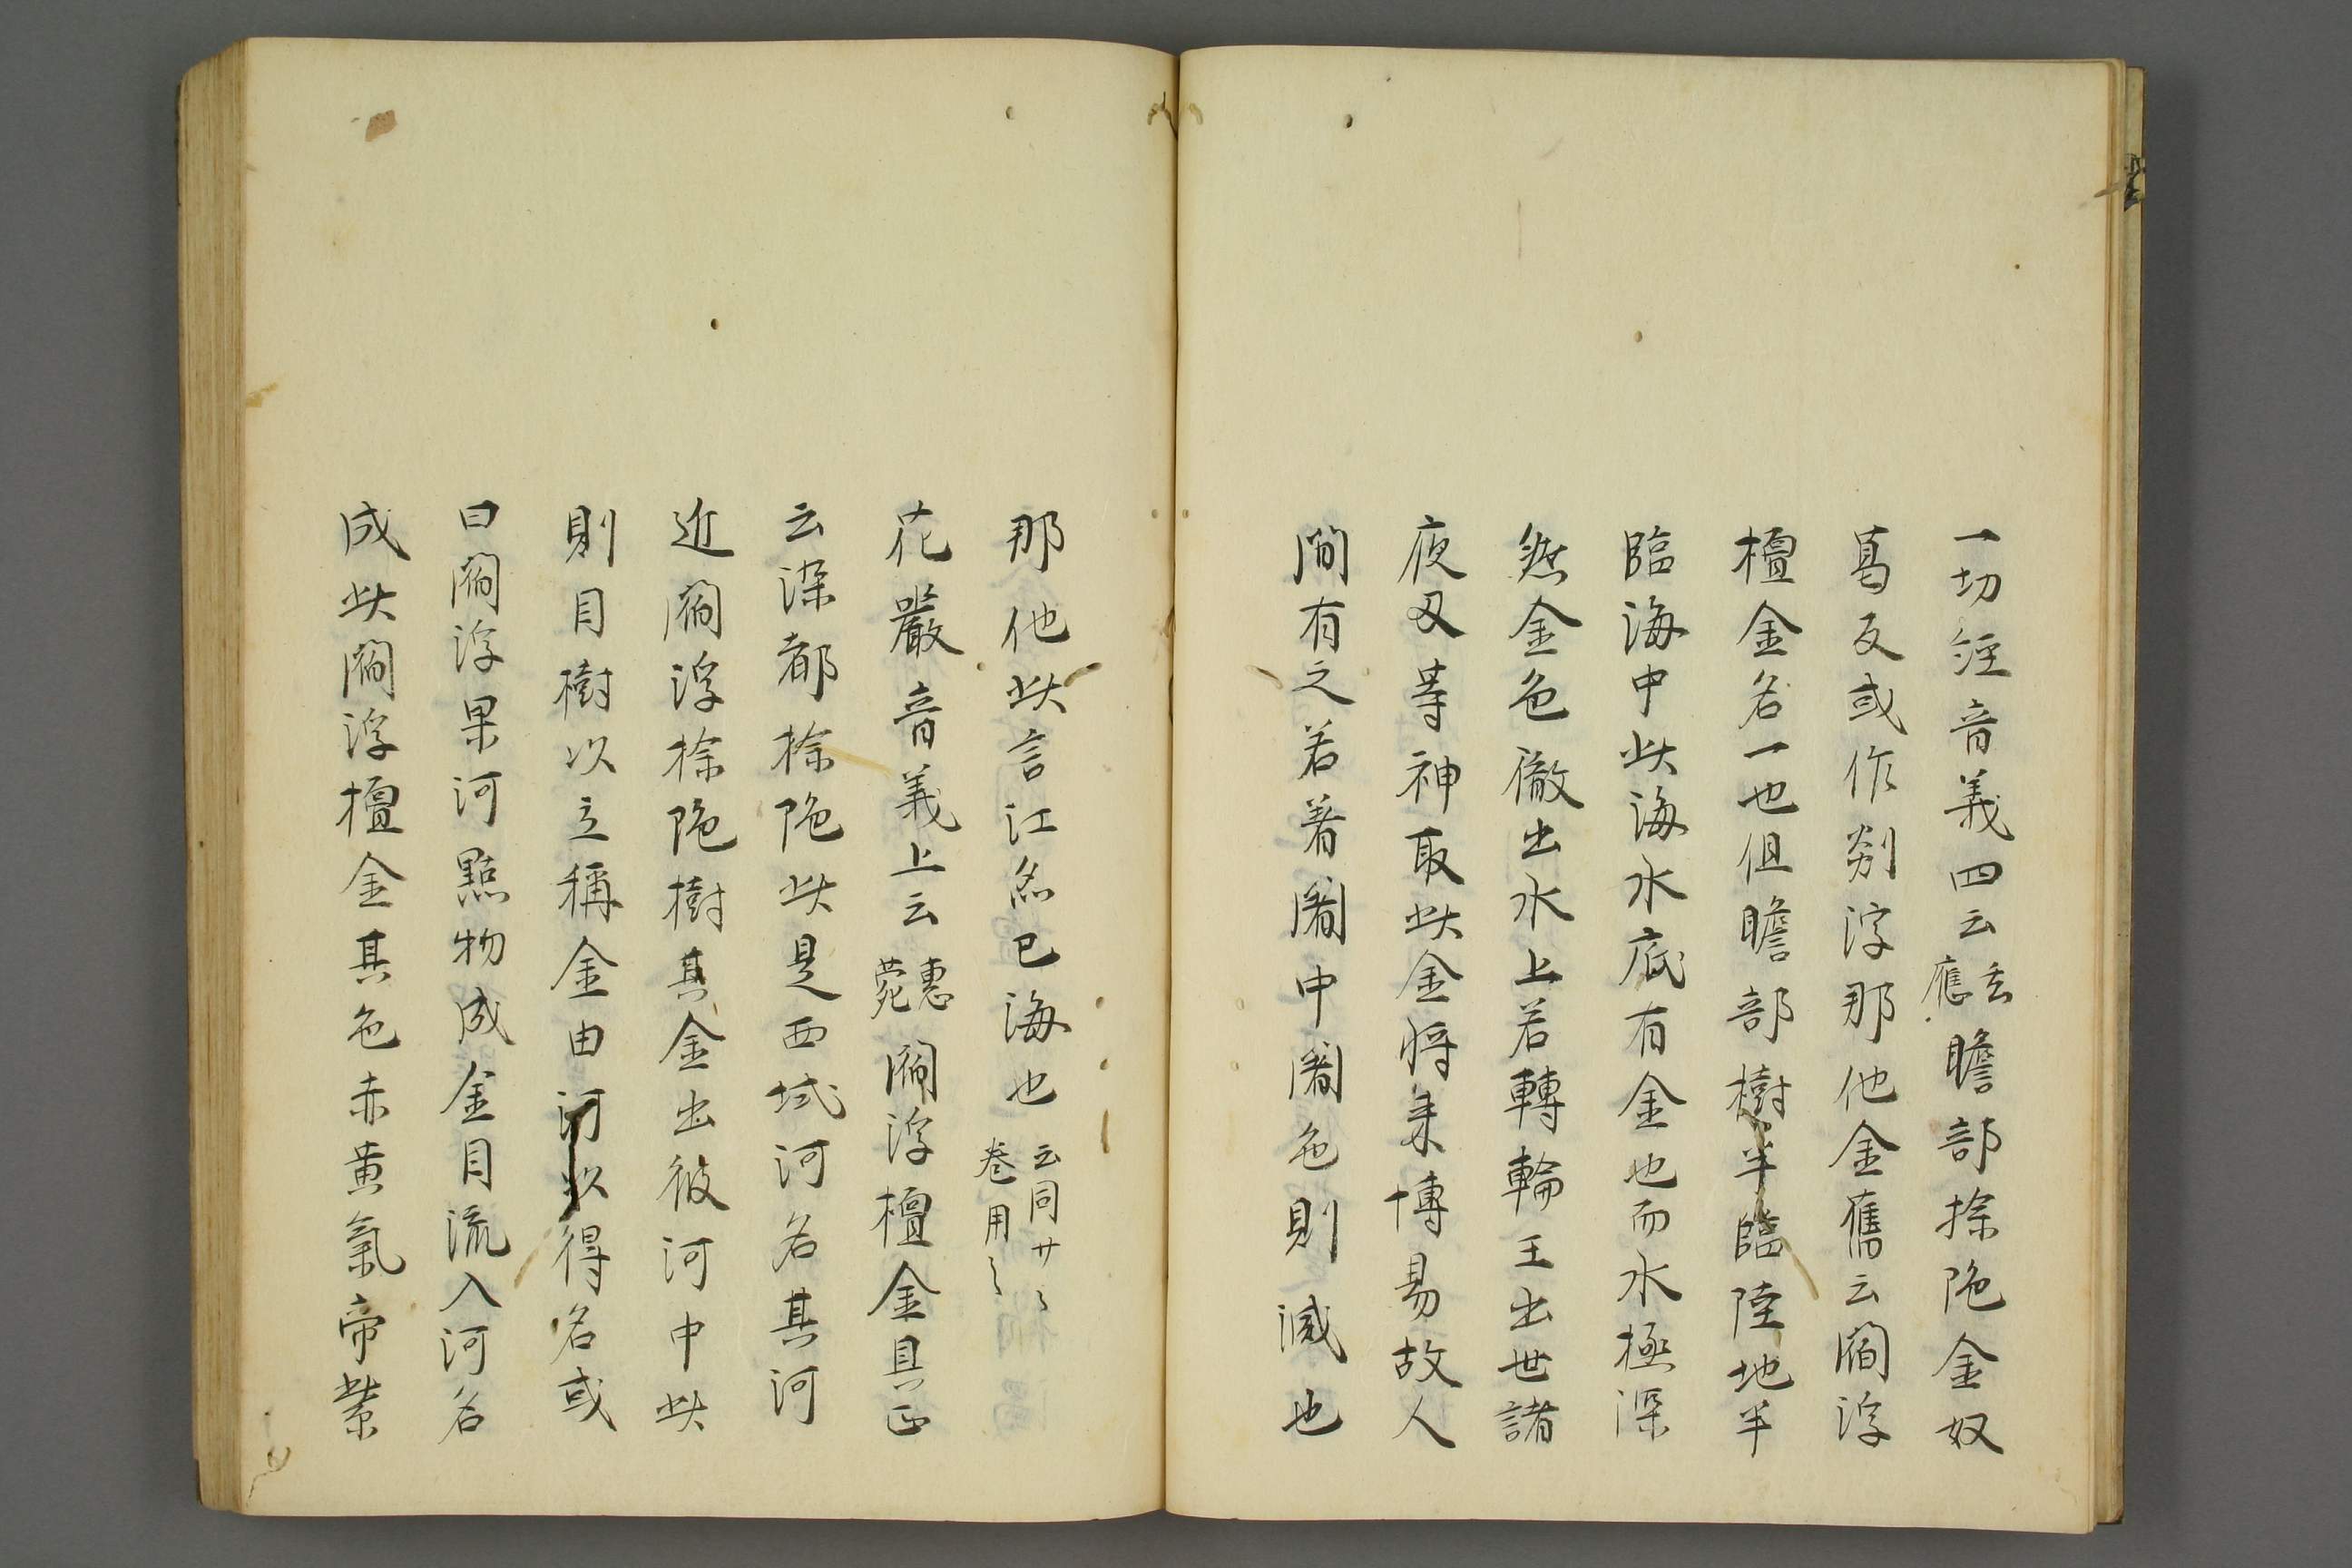 一切経音義四云玄應瞻部捺陁金奴
葛反或作剡浮那他金舊云閻浮
檀金名一也但瞻部樹半臨陸地半
臨海中此海水底有金也而水極深
然金色徹出水上若轉輪王出世諸
夜叉等神取此金将来博易故人
間有之若著闇中闇色則滅也
那他此言江名巳海也云同廿卷用
花嚴音義上云惠菀閻浮檀金具正
云染都捺陁此是西域河名其河
近閻浮捺陁樹其金出彼河中此
則目樹以立稱金由河以得名或
曰閻浮果河點物成金目流入河名
成此閻浮檀金其色赤黄氣帯紫